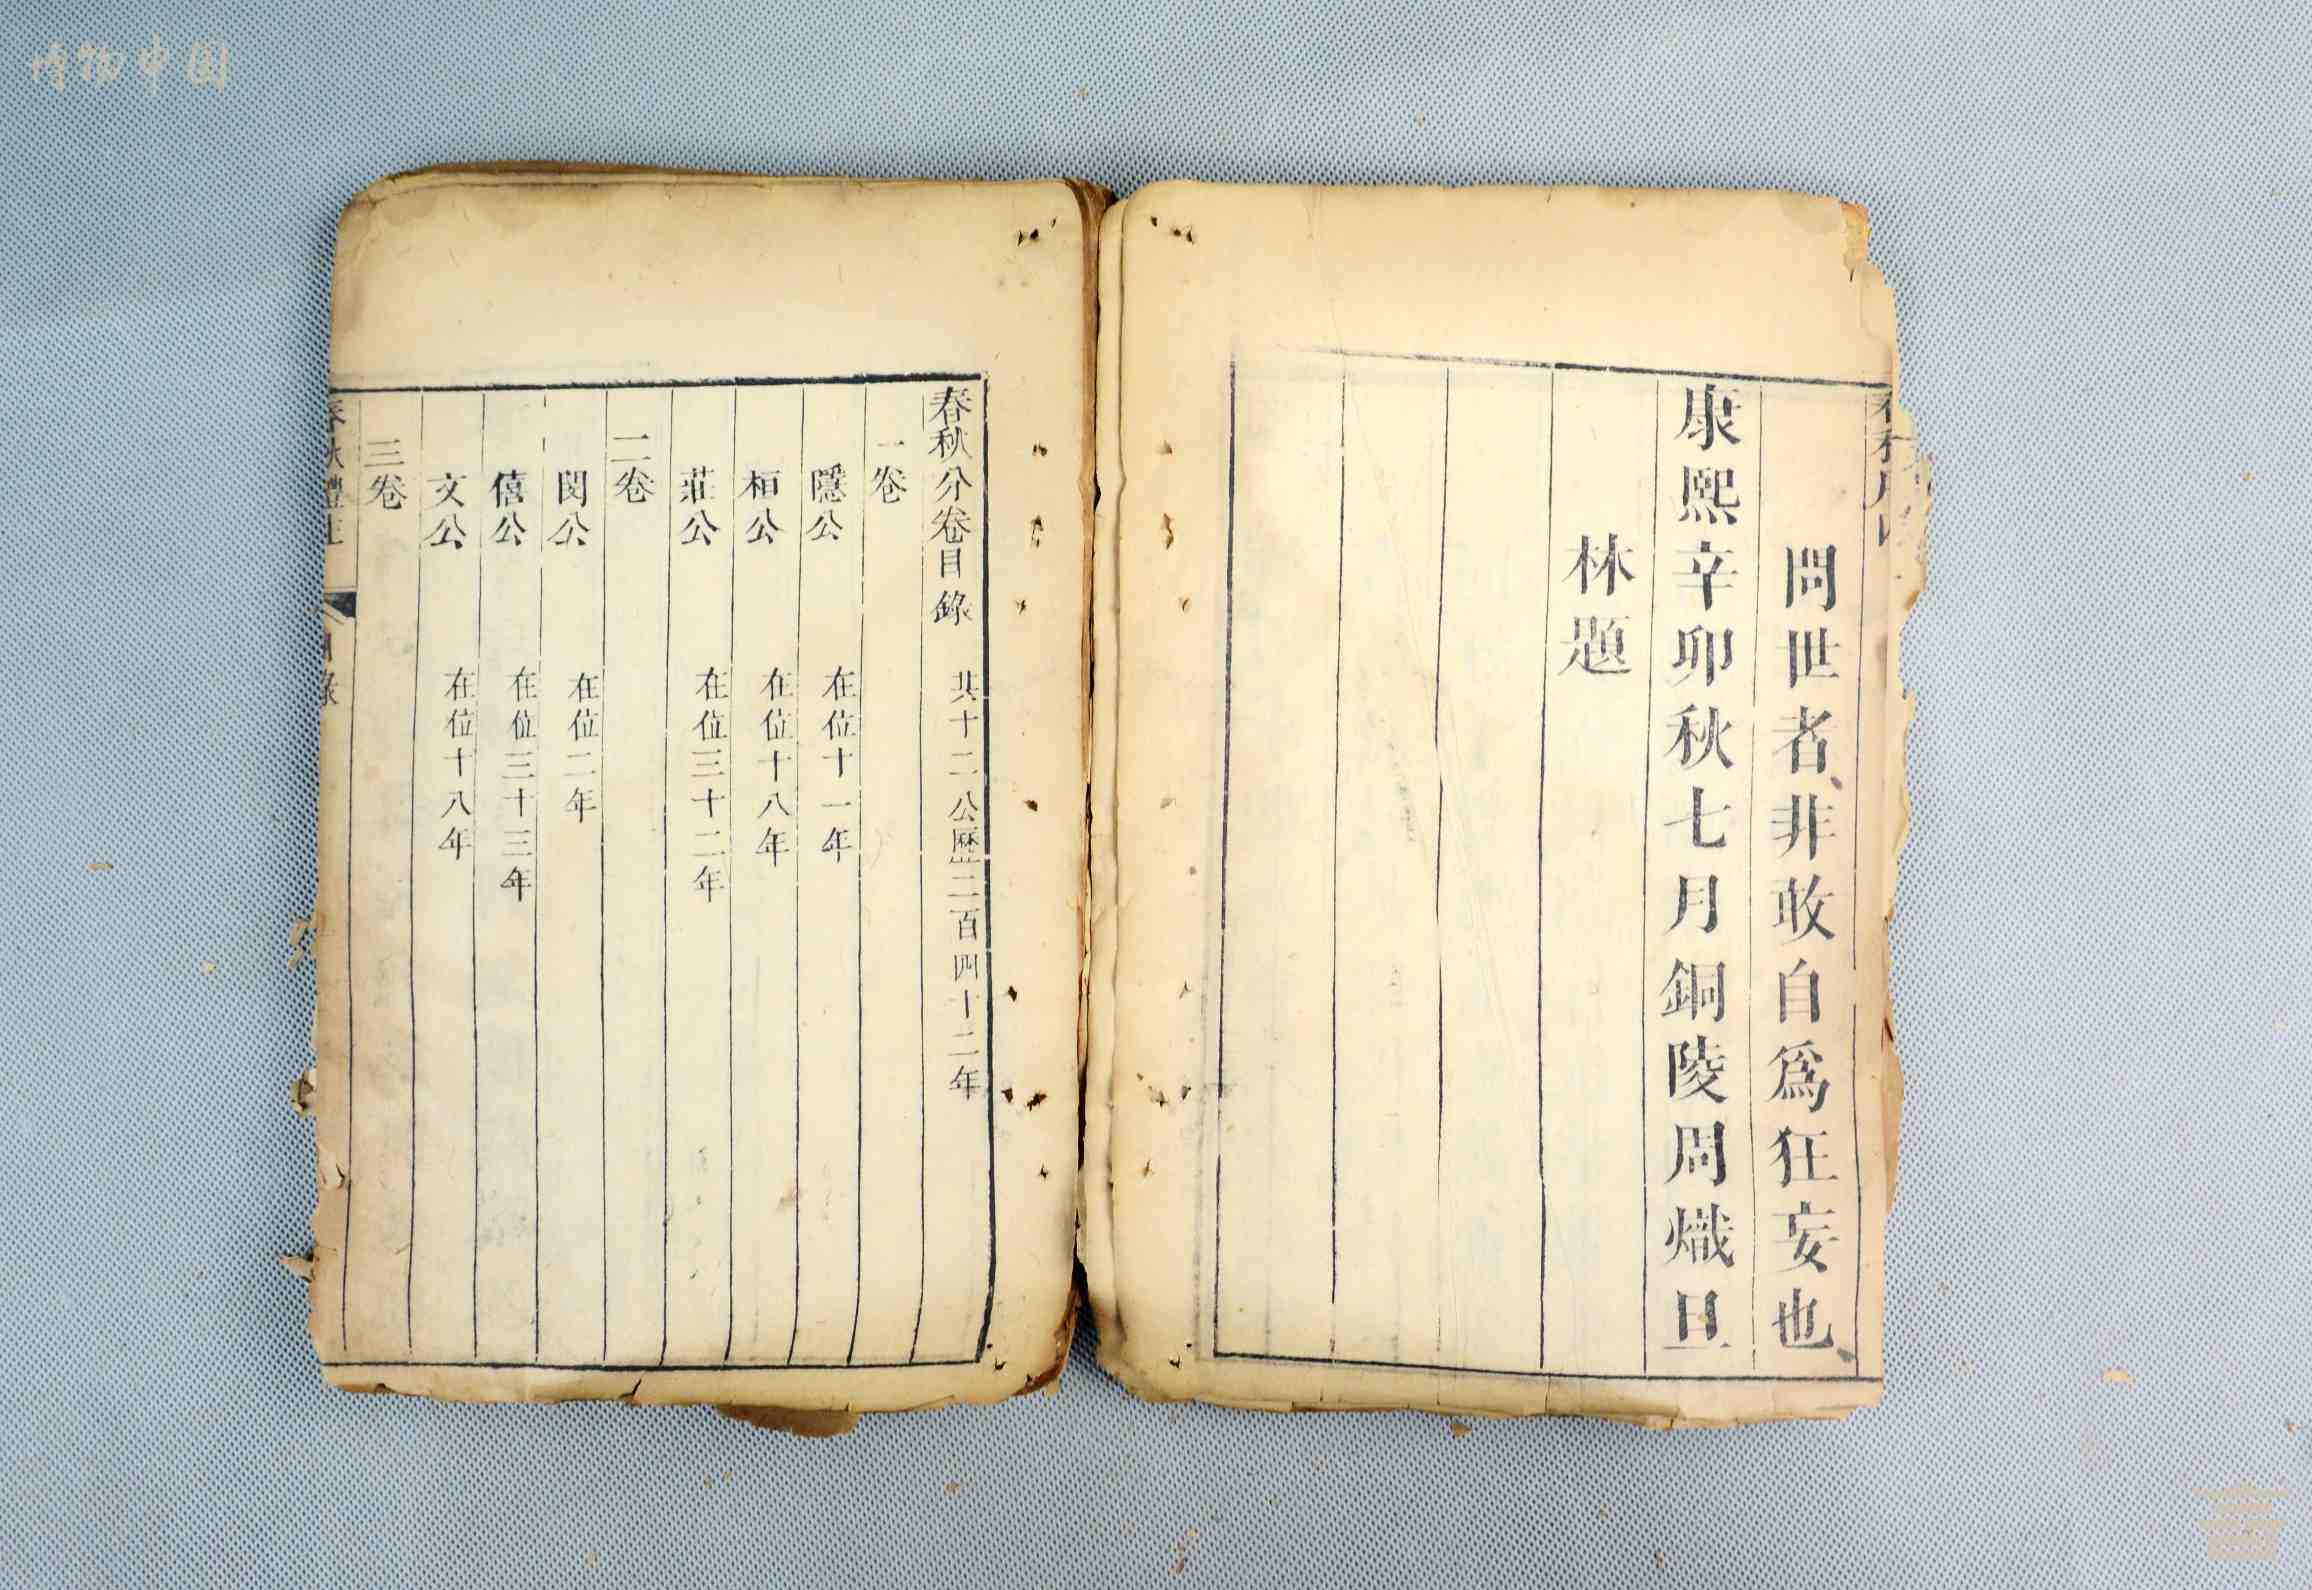 問世者、非敢自爲狂妄也、
康熙辛卯秋七月銅陵周熾旦
林題
春秋分卷目錄 共十二公歷二百四十二年
一卷
隱公 在位十一年
桓公 在位十八年
莊公 在位三十二年
二卷
閔公 在位二年
僖公 在位三十三年
文公 在位十八年
三卷
春秋體註 目錄
博物中国